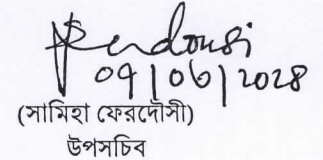 Ferdousi
09/06/2024
(সামিহা ফেরদৌসী)
উপসচিব